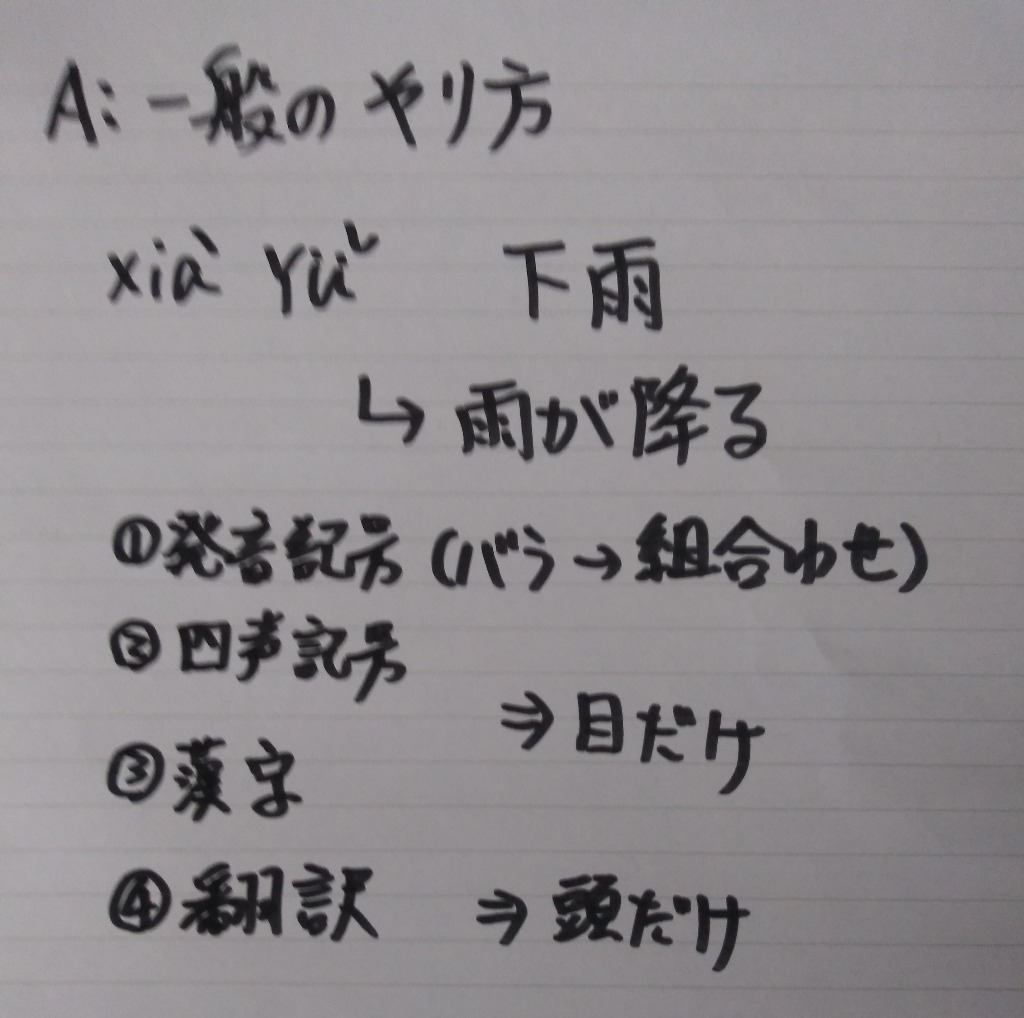 A:一般のやり方
xià yǔ 下雨
↳ 雨が降る
①発音記号 (バラ→組合わせ)
②四声記号
⇒ 目だけ
③漢字
④翻訳 ⇒ 頭だけ